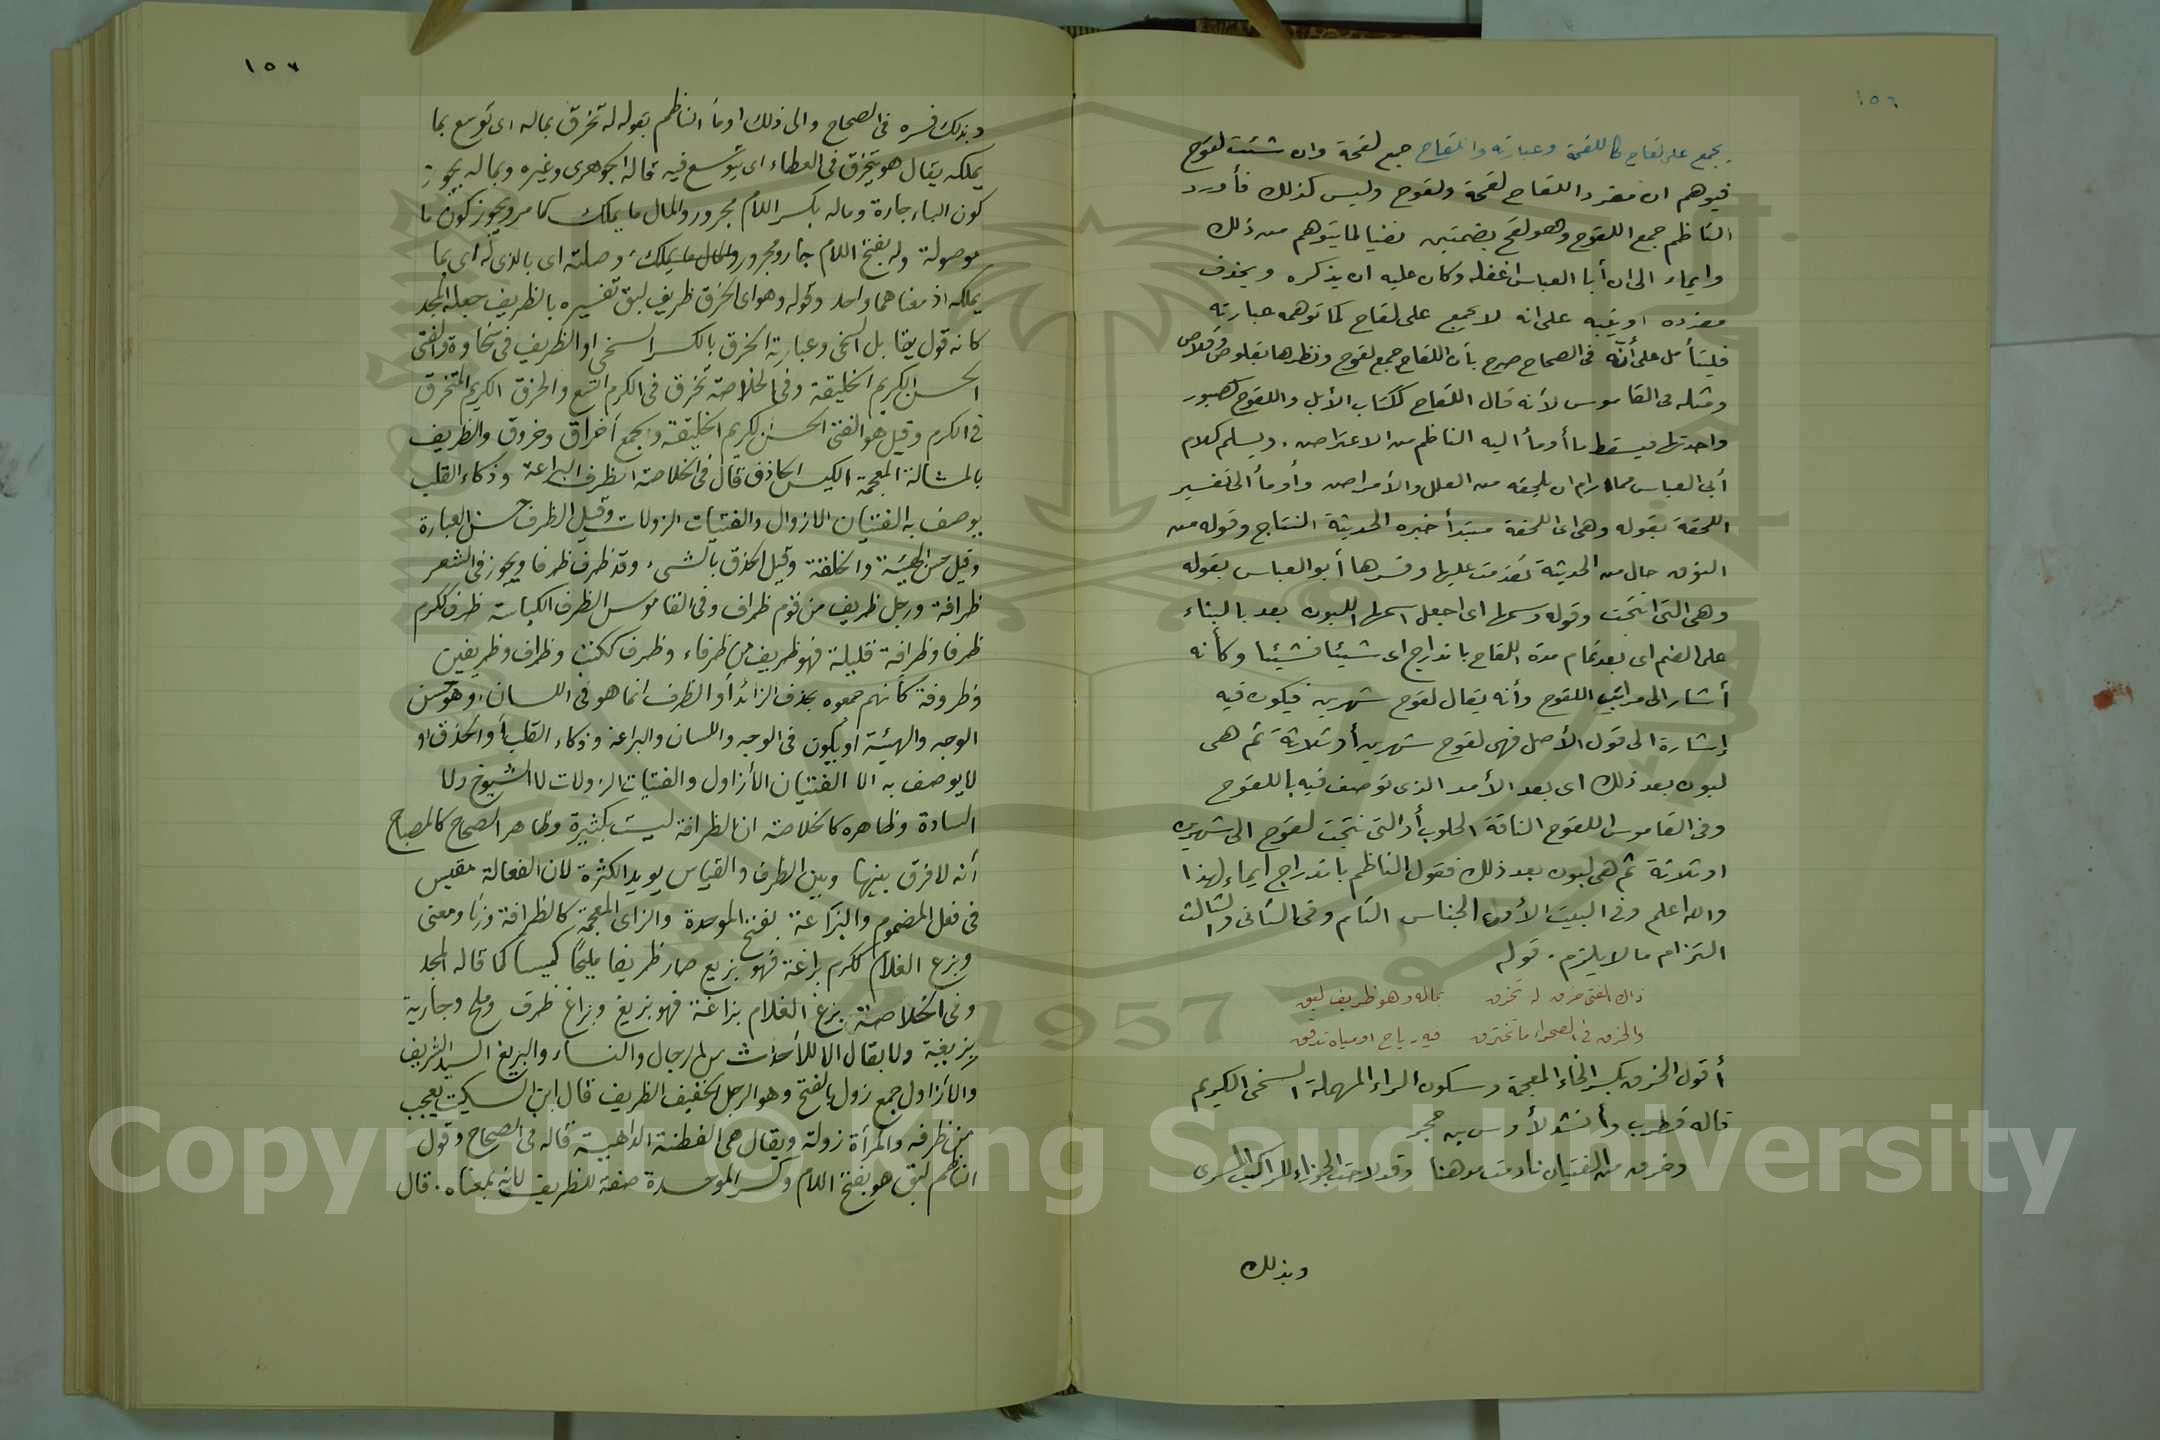 ١٥٦
يجمع على لقاح كاللقحة وعبارته واللقاح جمع لقحة وان شئت لقوح
فيوهم ان مفرد اللقاح لقحة ولقوح وليس كذلك فأورد
الناظم جمع اللقوح وهو لقح بضمتين نفيا لما يتوهم من ذلك
وايماء الى ان أبا العباس اغفله وكان عليه ان يذكره ويحذف
مفرده او ينبه على انه لا يجمع على لقاح كما توهمه عبارته
فليتأمل على أنّه في الصحاح صرح بأن اللقاح جمع لقوح ونظرها بقلوص وقلاص
ومثله في القاموس لأنه قال اللقاح ككتاب الأبل واللقوح كصبور
واحدتها فيسقط ما أومأ اليه الناظم من الاعتراض . ويسلم كلام
أبى العباس مما رام ان يلحقه من العلل والأمراض وأومأ الى تفسير
اللحقة بقوله وهى اى اللحقة مبتدأ خبره الحديثة النتاج وقوله من
النوق حال من الحديثة تقدمت عليها وفسرها أبو العباس بقوله
وهى التى انتجت وقوله وسمها اى اجعل اسمها اللبون بعد بالبناء
على الضم اى بعد تمام مدة اللقاح باندراج اى شيئا فشيئا وكأنه
أشار الى مراتب اللقوح وأنه يقال لقوح شهرين فيكون فيه
إشارة الى قول الأصل فهى لقوح شهرين أو ثلاثة ثم هى
لبون بعد ذلك اى بعد الأمد الذى توصف فيه باللقوح
وفى القاموس اللقوح الناقة الحلوب أو التى نتجت لقوح الى شهرين
او ثلاثة ثم هى لبون بعد ذلك فقول الناظم باندراج ايماء لهذا
والله اعلم وفى البيت الأول الجناس التام وفى الثانى والثالث
التزام ما لا يلزم . قوله
ذاك الفتى خرق له تخرق بماله وهو ظريف لبق
والخرق فى الصحراء ما تخترق فيه رياح او مياه تدفق
أقول الخرق بكسر الخاء المعجمة وسكون الراء المهملة السخى الكريم
قاله قطرب وأنشد لأوس بن حجر
وخرق من الفتيان نادمت موهنا وقد لاحت الجوزاء للراكب المسرى
وبذلك
١٥٧
وبذلك فسره فى الصحاح والى ذلك اومأ الناظم بقوله له تخرق بماله اى توسع بما
يملكه يقال هو يتخرق فى العطاء اى يتوسع فيه قاله الجوهرى وغيره وبماله يجوز
كون الباء جارة وماله بكسر اللام مجرور والمال ما يملك كما مر ويجوز كون ما
موصولة وله بفتح اللام جار ومجرور وصلته اى بالذى له اى بما
يملكه اذ معناهما واحد وقوله وهو اى الخرق ظريف لبق تفسيره بالظريف جعله المجد
كانه قول يقابل السخى وعبارته الخرق بالكسر السخى او الظريف فى سخاوة والفتى
الحسن الكريم الخليقة وفى الخلاصة تخرق فى الكرم اتسع والخرق الكريم المتخرق
فى الكرم وقيل هو الفتى الحسن الكريم الخليقة والجمع أخراق وخروق والظريف
بالمشالة المعجمة الكيس الحاذق قال فى الخلاصة الظرف البراعة وذكاء القلب
يوصف به الفتيان الازوال والفتيات الزولات وقيل الظرف حسن العبارة
وقيل حسن الهيئة والخلقة وقيل الحذق بالشىء وقد ظرف ظرفا ويجوز فى الشعر
ظرافة ورجل ظريف من قوم ظراف وفى القاموس الظرف الكياسة ظرف ككرم
ظرفا وظرافة قليلة فهو ظريف من ظرفاء وظرف ككتب وظراف وظريفين
وظروفة كأنهم جمعوه بحذف الزائد أو الظرف انما هو فى اللسان او هو حسن
الوجه والهيئة او يكون فى الوجه واللسان والبراعة وذكاء القلب أو الحذق او
لا يوصف به الا الفتيان الأزاول والفتيات الزولات لا الشيوخ ولا
السادة وظاهره كالخلاصة ان الظرافة ليست بكثيرة وظاهر الصحاح كالمصباح
أنه لا فرق بينها وبين الظرف والقياس يويد الكثرة لان الفعالة مقيس
فى فعل المضموم والبزاعة بفتح الموحدة والزاى المعجمة كالظرافة وزنا ومعنى
وبزع الغلام ككرم بزاعة فهو بزيع صار ظريفا مليحا كيسا كما قاله المجد
وفى الخلاصة بزغ الغلام بزاغة فهو بزيغ وبزاغ ظرف وملح وجارية
بزيعة ولا يقال الا للأحداث من الرجال والنساء والبزيغ السيد الشريف
والأزاول جمع زول بالفتح وهو الرجل الخفيف الظريف قال ابن السكيت يعجب
من ظرفه والمرأة زولة ويقال هى الفطنة الداهية قاله فى الصحاح وقول
الناظم لبق هو بفتح اللام وكسر الموحدة صفة للظريف لأنه بمعناه . قال
1957
Copyright © King Saud University